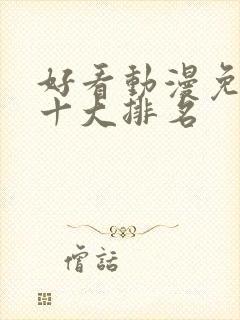 好看動漫免
十大排名
僧話